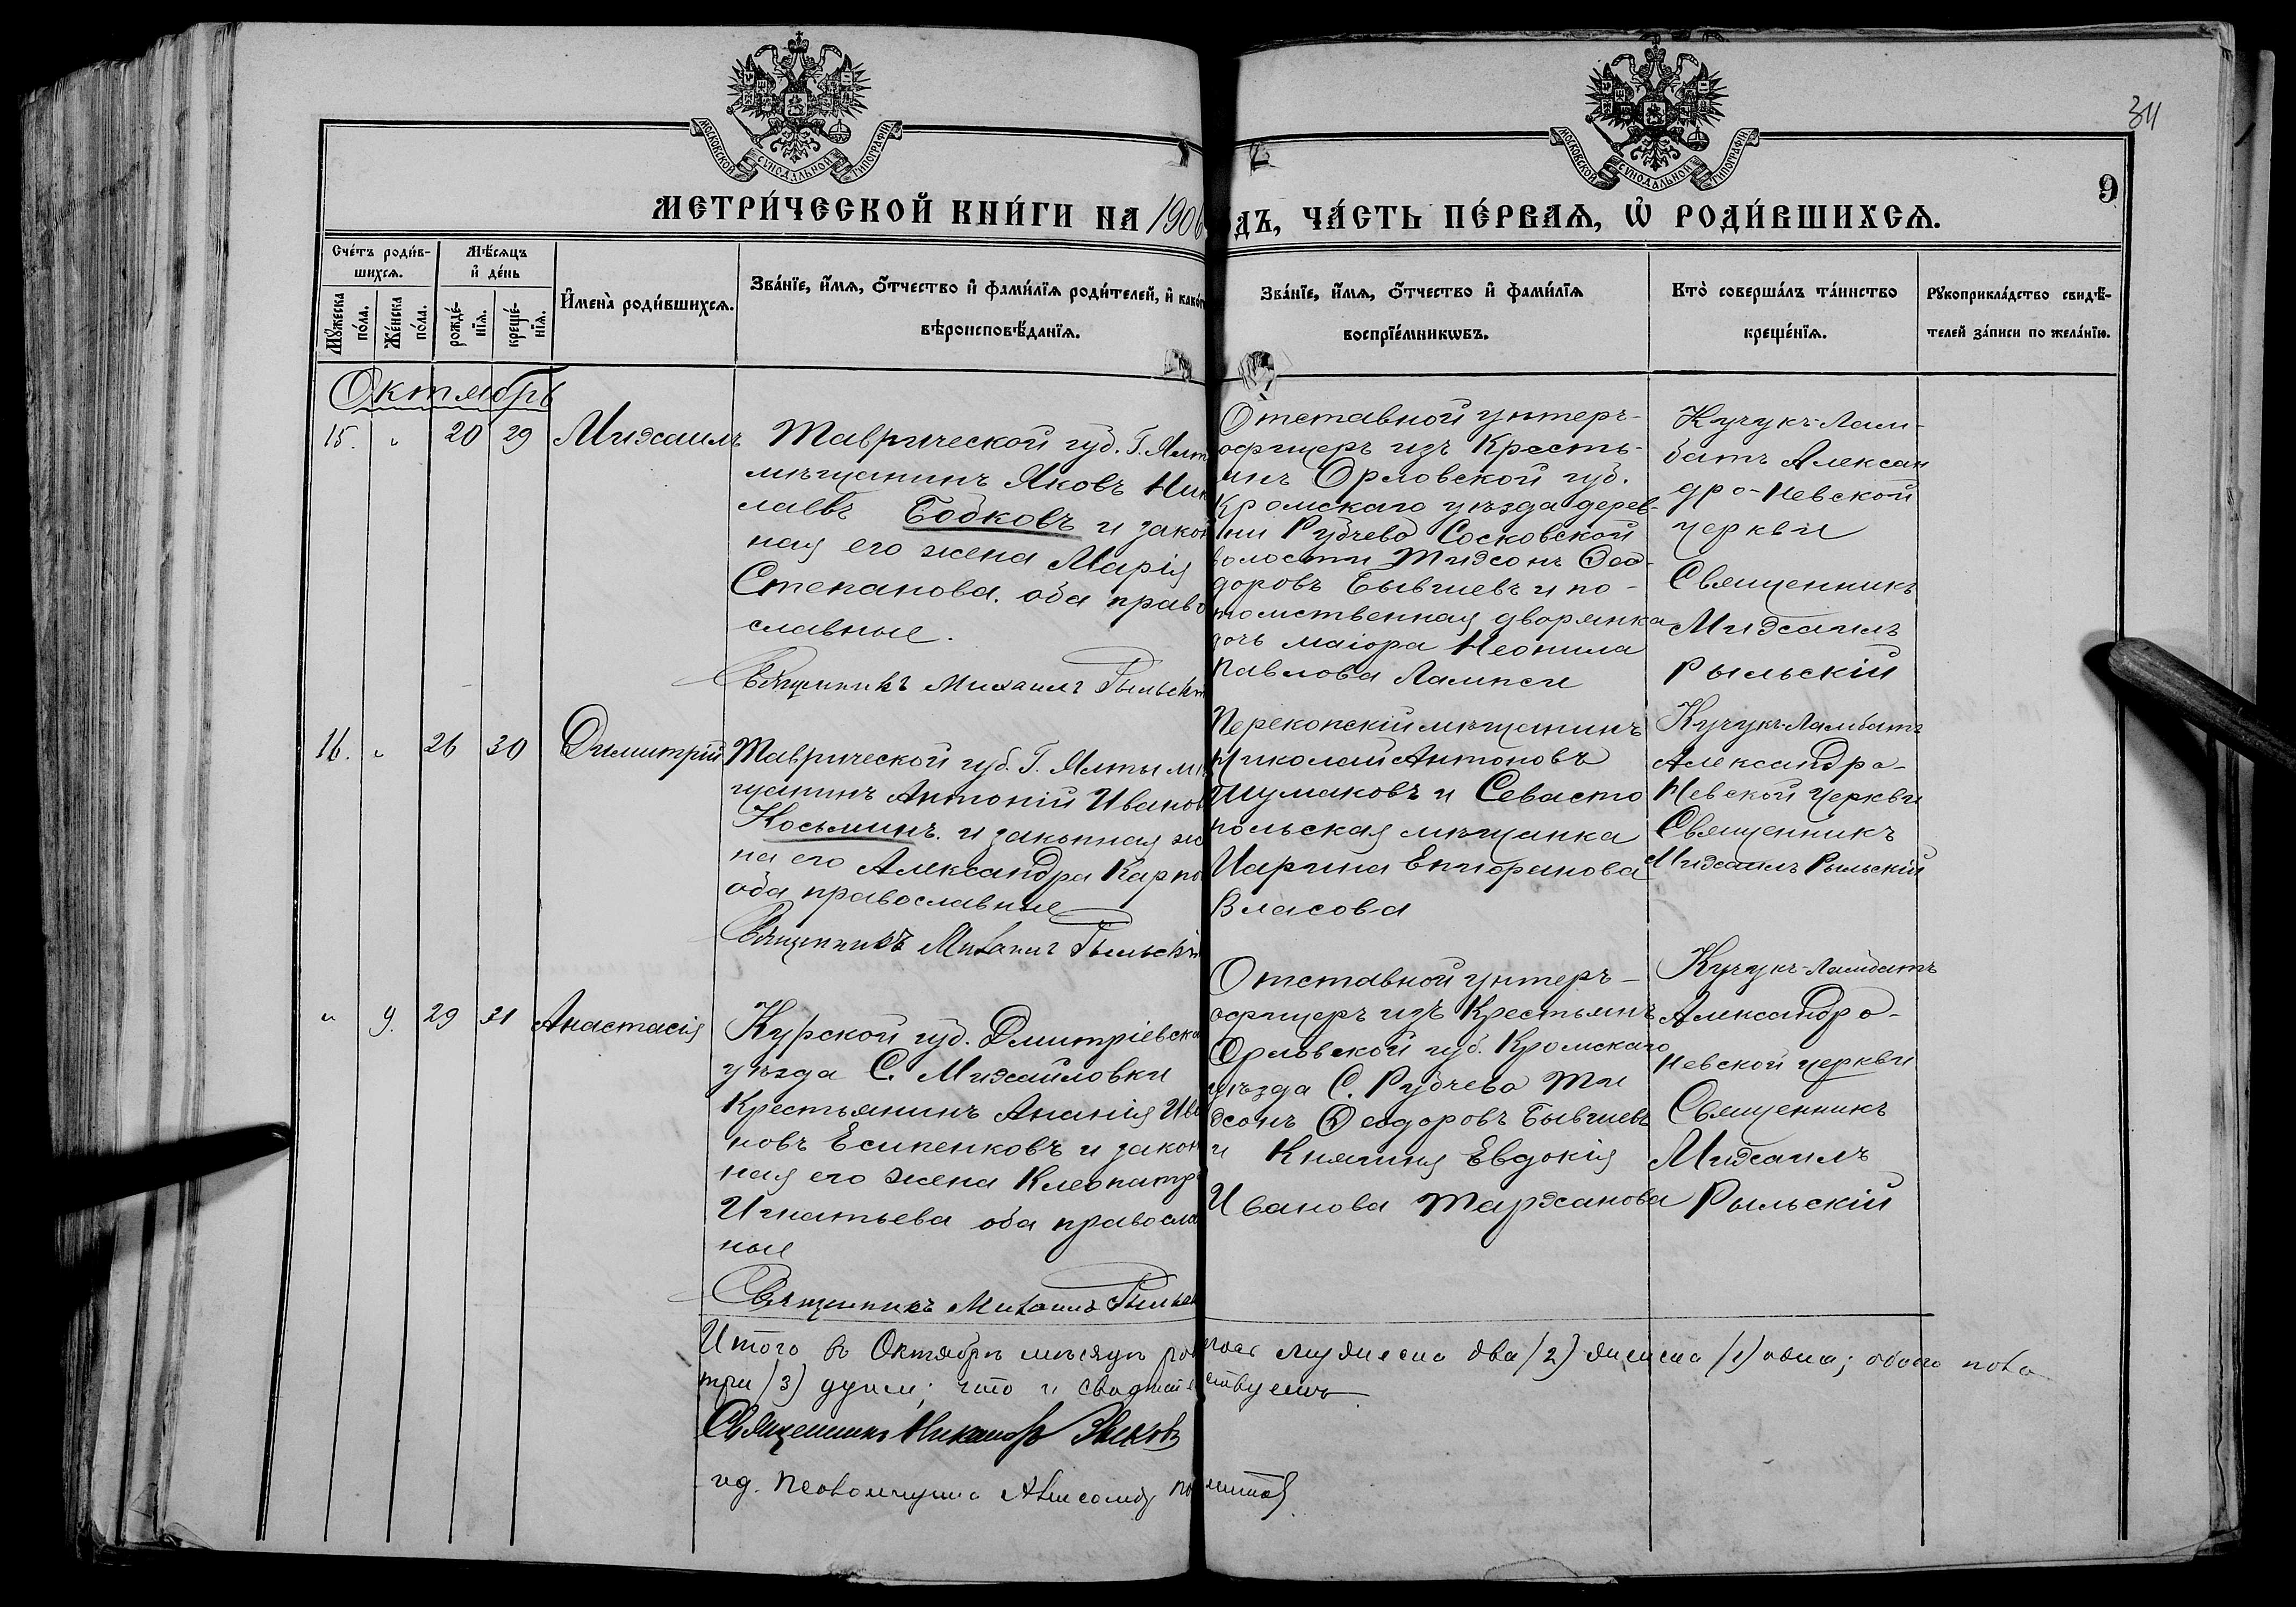 МОСКОВСКОЙ СУНОДАЛЬНОЙ ТИПОГРАФІИ
МОСКОВСКОЙ СУНОДАЛЬНОЙ ТИПОГРАФІИ
34
9
МЕТРИ́ЧЕСКОЙ КНИ́ГИ НА 1906
ОДЪ, ЧА́СТЬ ПЕ́РВАѦ, Ѡ҆ РОДИ́ВШИХСѦ.
Сче́тъ роди́в-
шихсѧ.
Мѣ́сѧцъ
и҆ де́нь
Мꙋ́жеска
по́ла.
Же́нска
по́ла.
рожде́-
нїѧ.
креще́-
нїѧ.
И҆мена̀ роди́вшихсѧ.
Зва́нїе, и҆́мѧ, ѻ҆́тчество и҆ фами́лїѧ роди́телей, и҆ како́г
вѣроисповѣ́данїѧ.
Зва́нїе, и҆́мѧ, ѻ҆́тчество и҆ фами́лїѧ
воспрїе́мникѡвъ.
Кто̀ соверша́лъ та́инство
креще́нїѧ.
Рꙋкоприкла́дство свидѣ́-
телей за́писи по жела́нїю.
Октябрь
15. „ 20 29 Михаилъ
Таврической губ. Г. Ялт
мѣщанинъ Яковъ Ник
лаевъ Бобковъ и закон
ная его жена Марія
Степанова. оба право
славные.
Священникъ Михаилъ Рыльскі
Отставной унтеръ-
офицеръ изъ Кресть-
янъ Орловской губ.
Кромскаго уѣзда дерев-
ни Рубчево Сосковской
волости Тихонъ Фео-
доровъ Бывшевъ и по-
томственная дворянка
дочь маіора Неонила
Павлова Лампси
Кучукъ-Лам-
батъ Алексан
дро-Невской
церкви
Священникъ
Михаилъ
Рыльскій
16. „ 26 30 Димитрій
Таврической губ. Г. Ялты мѣ
щанинъ Антоній Иванов
Косьминъ. и законная же
на его Александра Карпо
оба православные
Священникъ Михаилъ Рыльскі
Перекопскій мѣщанинъ
Николай Антоновъ
Шумаковъ и Севасто
польская мѣщанка
Марина Епифанова
Власова
Кучукъ-Ламбатъ
Александро-
Невской церкви
Священникъ
Михаилъ Рыльскій
„ 9. 29 31 Анастасія
Курской губ. Дмитріевска
уѣзда С. Михайловки
Крестьянинъ Ананія Ива
новъ Есипенковъ и закон
ная его жена Клеопатр
Игнатьева оба правосла
ные
Священникъ Михаилъ Рыльск
Отставной унтеръ-
офицеръ изъ Крестьянъ
Орловской губ. Кромскаго
уѣзда С. Рубчева Ти
хонъ Феодоровъ Бывшевъ
и Княгиня Евдокія
Иванова Тарханова
Кучукъ-Ламбатъ
Александро-
невской церкви
Священникъ
Михаилъ
Рыльскій
Итого въ Октябрѣ мѣсяцѣ мужеска два (2) женска (1) одна; обоего пола
три (3) души; что и свидѣтельствуемъ.
Священникъ Никаноръ